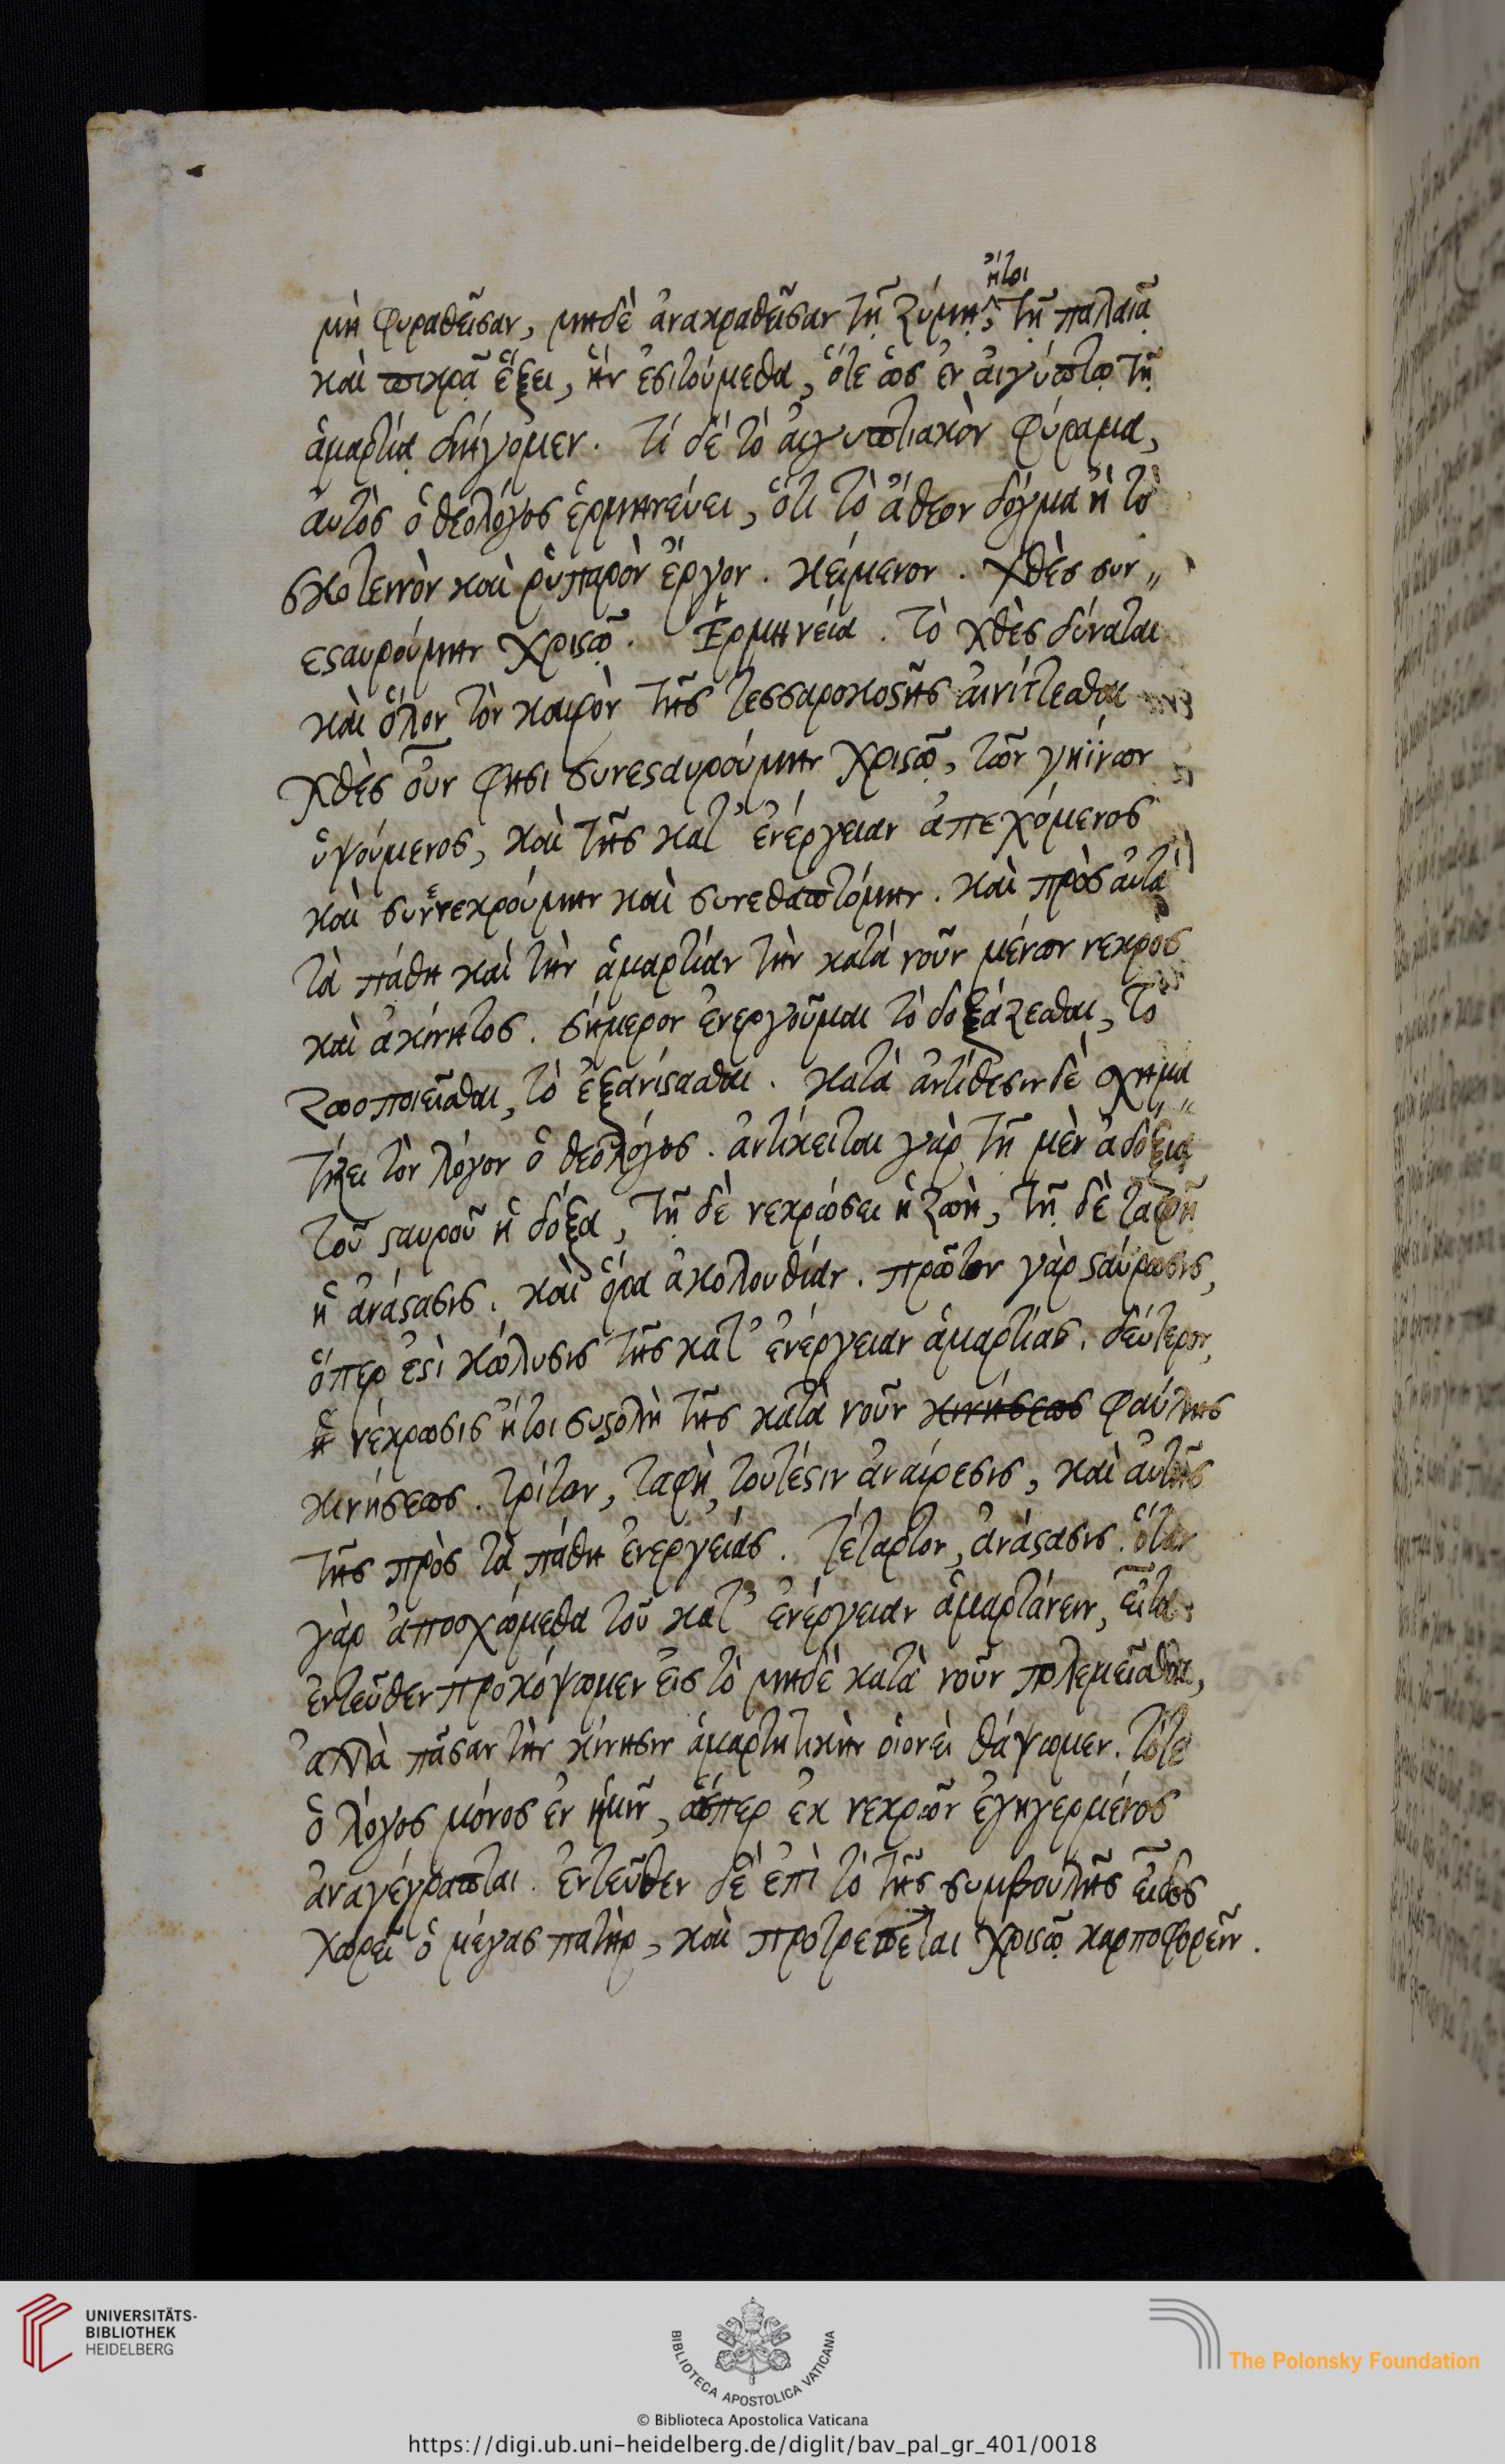 ἤτοι
μὴ φυραθεῖσαν, μηδὲ ἀνακραθεῖσαν τῇ ζύμῃ, τῇ παλαιᾷ
καὶ πικρᾷ ἕξει, ἣν ἐσιτούμεθα, ὅτε ὡς ἐν αἰγύπτῳ τῇ
ἁμαρτίᾳ διήγομεν. τί δὲ τὸ αἰγυπτιακὸν φύραμα,
αὐτὸς ὁ θεολόγος ἑρμηνεύει, ὅτι τὸ ἄθεον δόγμα ἢ τὸ
σκοτεινὸν καὶ ῥυπαρὸν ἔργον. κείμενον. Χθὲς συν„
εσταυρούμην Χριστῷ. Ἑρμηνεία. τὸ χθὲς δύναται
καὶ ὅλον τὸν καιρὸν τῆς τεσσαροκοστῆς αἰνίττεσθαι
Χθὲς οὖν φησι συνεσταυρούμην Χριστῷ, τῶν γηΐνων
ὑψούμενος, καὶ τῆς κατ' ἐνέργειαν ἀπεχόμενος
καὶ συνενεκρούμην καὶ συνεθαπτόμην. καὶ πρὸς αὐτὰ
τὰ πάθη καὶ τὴν ἁμαρτίαν τὴν κατὰ νοῦν μένων νεκρὸς
καὶ ἀκίνητος. σήμερον ἐνεργοῦμαι τὸ δοξάζεσθαι, τὸ
ζωοποιεῖσθαι, τὸ ἐξανίστασθαι. κατὰ ἀντίθεσιν δὲ σχημα„
τίζει τὸν λόγον ὁ θεολόγος. ἀντίκειται γὰρ τῇ μὲν ἀδοξίᾳ
τοῦ σταυροῦ ἡ δόξα, τῇ δὲ νεκρώσει ἡ ζωὴ, τῇ δὲ ταφῇ
ἡ ἀνάστασις. καὶ ὅρα ἀκολουθίαν. πρῶτον γὰρ σταύρωσις,
ὅπερ ἐστὶ κώλυσις τῆς κατ' ἐνέργειαν ἁμαρτίας. δεύτερον,
ἡ νέκρωσις ἤτοι συστολὴ τῆς κατὰ νοῦν κινήσεως φαύλης
κινήσεως. τρίτον, ταφὴ, τουτέστιν ἀναίρεσις, καὶ αὐτῆς
τῆς πρὸς τὰ πάθη ἐνεργείας. τέταρτον, ἀνάστασις. ὅταν
γὰρ ἀποσχώμεθα τοῦ κατ' ἐνέργειαν ἁμαρτάνειν, εἶτα
ἐντεῦθεν προκόψωμεν εἰς τὸ μηδὲ κατὰ νοῦν πολεμεῖσθαι,
ἀλλὰ πᾶσαν τὴν κίνησιν ἁμαρτητικὴν οἱονεὶ θάψωμεν. τότε
ὁ λόγος μόνος ἐν ἡμῖν, ὥσπερ ἐκ νεκρῶν ἐγηγερμένος
ἀναγέγραπται. ἐντεῦθεν δὲ ἐπὶ τὸ τῆς συμβουλῆς εἶδος
χωρεῖ ὁ μέγας πατὴρ, καὶ προτρέπεται Χριστῷ καρποφορεῖν.
UNIVERSITÄTS-
BIBLIOTHEK
HEIDELBERG
BIBLIOTECA APOSTOLICA VATICANA
The Polonsky Foundation
© Biblioteca Apostolica Vaticana
https://digi.ub.uni-heidelberg.de/diglit/bav_pal_gr_401/0018